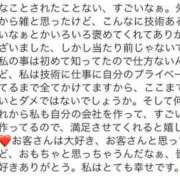 なことされたことない、すごいなぁ。ﾀ
から雑と思ったけど、こんなに技術ある
いなぁとかいろいろ褒めてくれてありが
ざいました、しかし当たり前じゃないで
私の事は初めて知ってたので仕方ないん
ど、私は技術に仕事に自分のプライベー
てるまで全てかけてますから、ここまで
いとダメではないでしょうか。そして何
れから私も自分の会社を作って、すごい
作ってるので、満足させてくれると嬉し
❤お客さんは大好き、お客さんと思って
ど、おもちゃと思っちゃうんだなぁ。皆
好きありがとう。私はとても幸せです。